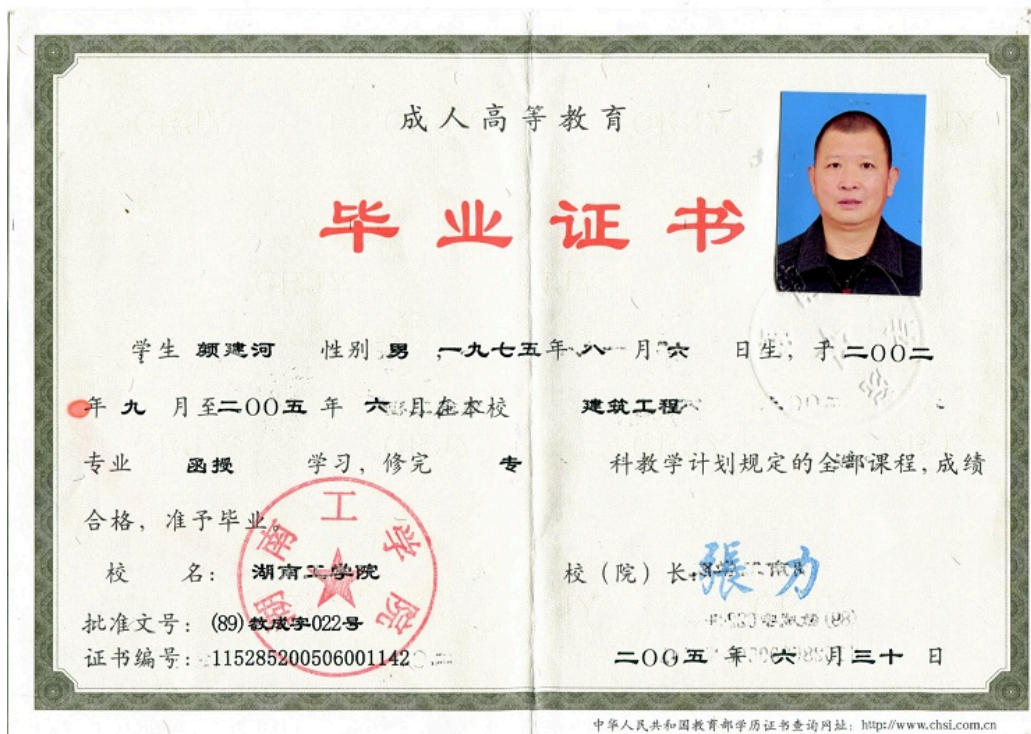 成人高等教育
毕业证书
学生 颜建河 性别 男 ,一九七五年 八 月 六 日生，于二〇〇二
年 九 月至二〇〇五 年 六 月在本校 建筑工程
专业 函授 学习，修完 专 科教学计划规定的全部课程，成绩
合格，准予毕业。
校 名： 湖南工学院
校（院）长：張力
批准文号：(89)教成字022号
证书编号：115285200506001142
二〇〇五 年 六 月三十 日
湖南工学院
中华人民共和国教育部学历证书查询网址：http://www.chsi.com.cn